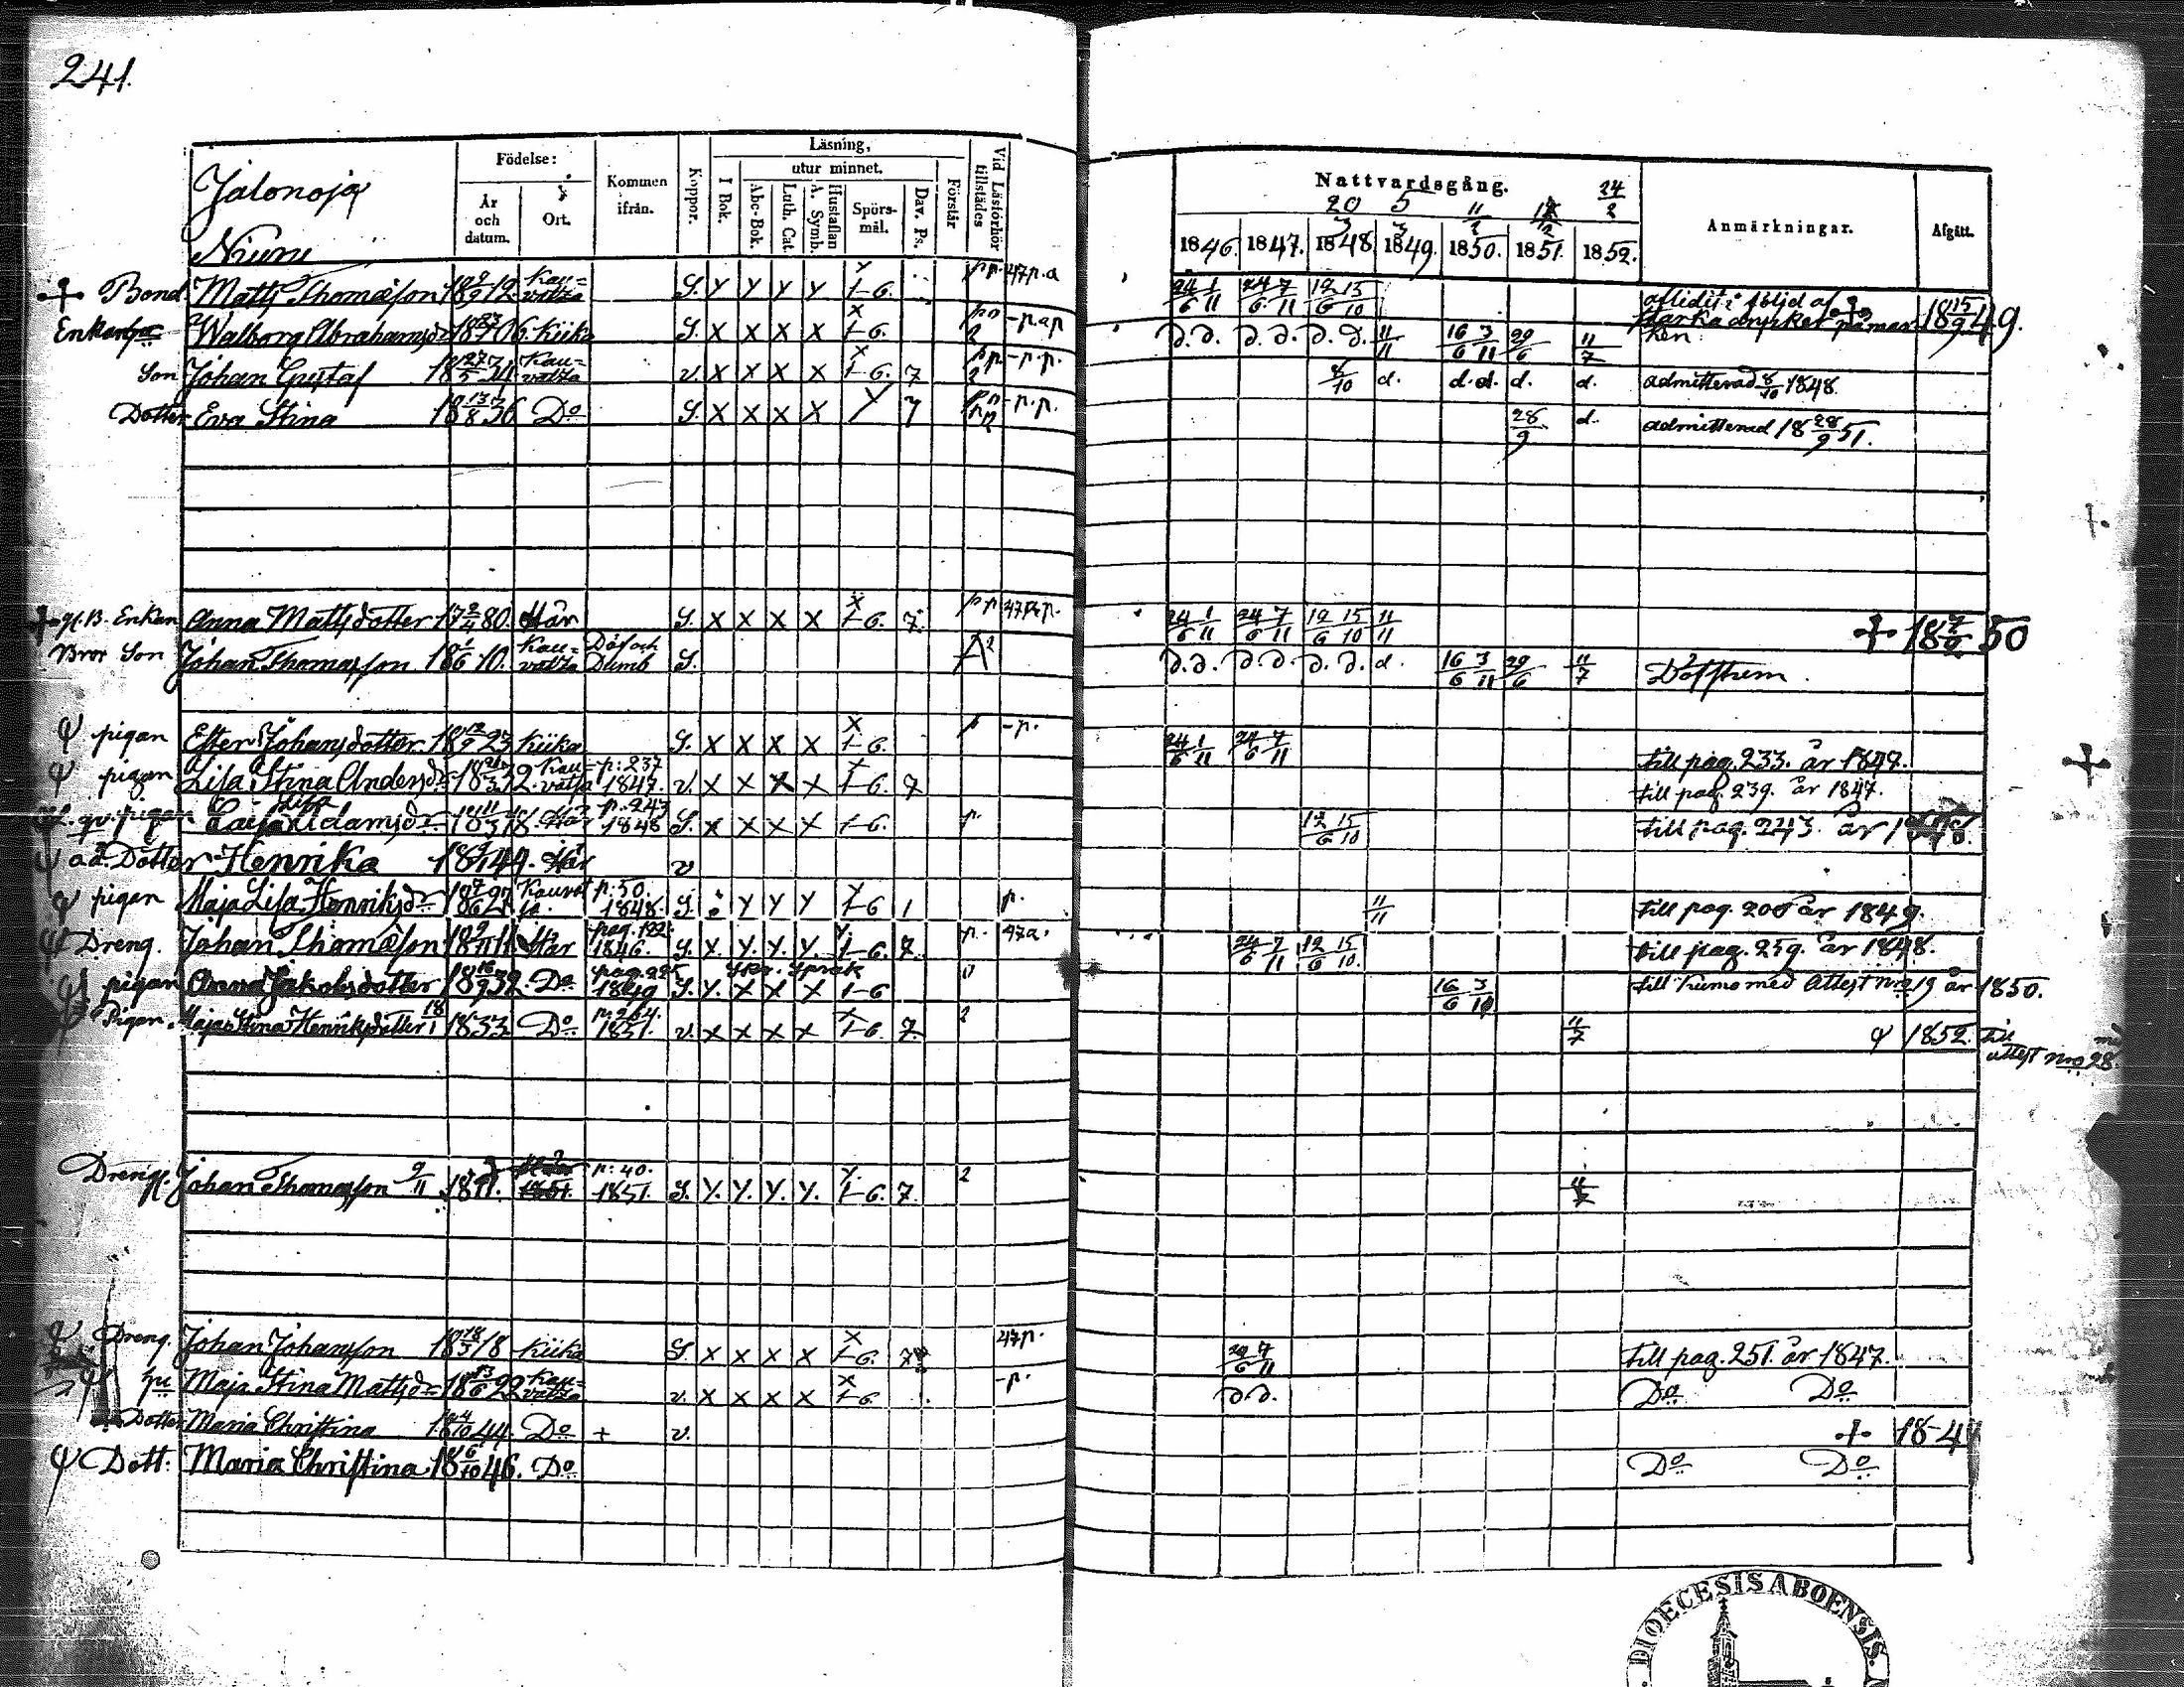 241.
Jalonoja
Födelse:
År och datum.
Ort.
Kommen ifrån.
Koppor.
Läsning,
I Bok.
utur minnet.
Abc-Bok.
Luth. Cat.
A. Symb.
Hustaflan
Spörs-mål.
Dav. Ps.
Förstår
Vid Läsförhör tillstädes
Nattvardsgång.
20/3 5/3 11/2 24/2
1846. 1847. 1848. 1849. 1850. 1851. 1852.
Anmärkningar.
Afgått.
Bond. Matts Thomasson 12. Kau=vatza S. Y Y Y Y 1-6. 24/6 1/11 24/6 7/11 12/6 15/10 aflidit i följd af starka drycker 18 15/9 49.
Enkan Walborg Abrahamsdr 18 23/7 06. Kiika S. X X X X 1-6. d.d. d.d. d.d. 11/11 16/6 3/11 29/6 11/7
Son Johan Gustaf 18 27/5 31 Kau=vatza v. X X X X 1-6. 7 8/10 d. d.d. d. d. admitterad 8/10 1848.
Dotter Eva Stina 18 13/8 36 Do S. X X X X 7 28/9 d. admitterad 18 28/9 51.
Enkan Anna Mattsdotter 17 2/4 80. Här S. X X X X 1-6. 7. 24/6 1/11 24/6 7/11 12/6 15/10 11/11 50
Son Johan Thomasson 18 1/6 10. Kau=vatza Döf och Dumb S. d.d. d.d. d.d. d. 16/6 3/11 29/6 11/7 Döfstum.
pigan Ester Johansdotter. 18 12/9 23 Kiika S. X X X X 1-6. p -p. 24/6 1/11 24/6 7/11 till pag. 233. år 1847.
pigan Lisa Stina Andersdr 32. Kau=vatza p: 237 1847. v. X X X X 1-6. 7 till pag. 239. år 1847.
pigan Caisa Lisa Adamsdr 18 11/3 18. Här p. 243 1848 S. X X X X 1-6. p. 12/6 15/10 till pag. 243. år
Dotter Henrika 44. Här v
pigan Maja Lisa Henriksdr p: 50. 1848. S. Y Y Y 1-6 1 p. 11/11 till pag. 200 år 1849.
Dreng. Johan Thomasson 18 9/11 11. Här pag. 122. 1846. S. Y. Y. Y. Y. 1-6. 7. p. 47a. 24/6 7/11 12/6 15/10. till pag. 259. år 1848.
pigan Anna Jakobsdotter 32. Do 1849 S. Y. X X X 1-6 16/6 till Kumo med Attest Nro 19 år 1850.
Pigan. Maja Stina Henriksdotter 18/1 1833 Do p. 264. 1851. v. X X X X 1-6. 7. 11/7 1852. till attest Nro 28.
Dreng. Johan Thomasson 9/11 1811. p: 40. 1851. S. Y. Y. Y. Y. 1-6. 7. 2
Dreng. Johan Johansson 18 Kiika S. X X X X 1-6. 47p. till pag. 251. år 1847.
Maja Stina Mattsdr 22 Kau=vatza v. X X X X 1-6. -p. d.d. Do Do
Dotter Maria Christina 44. Do + v.
Dott: Maria Christina. 18 6/10 46. Do Do Do
DIOECESIS ABOENSIS.